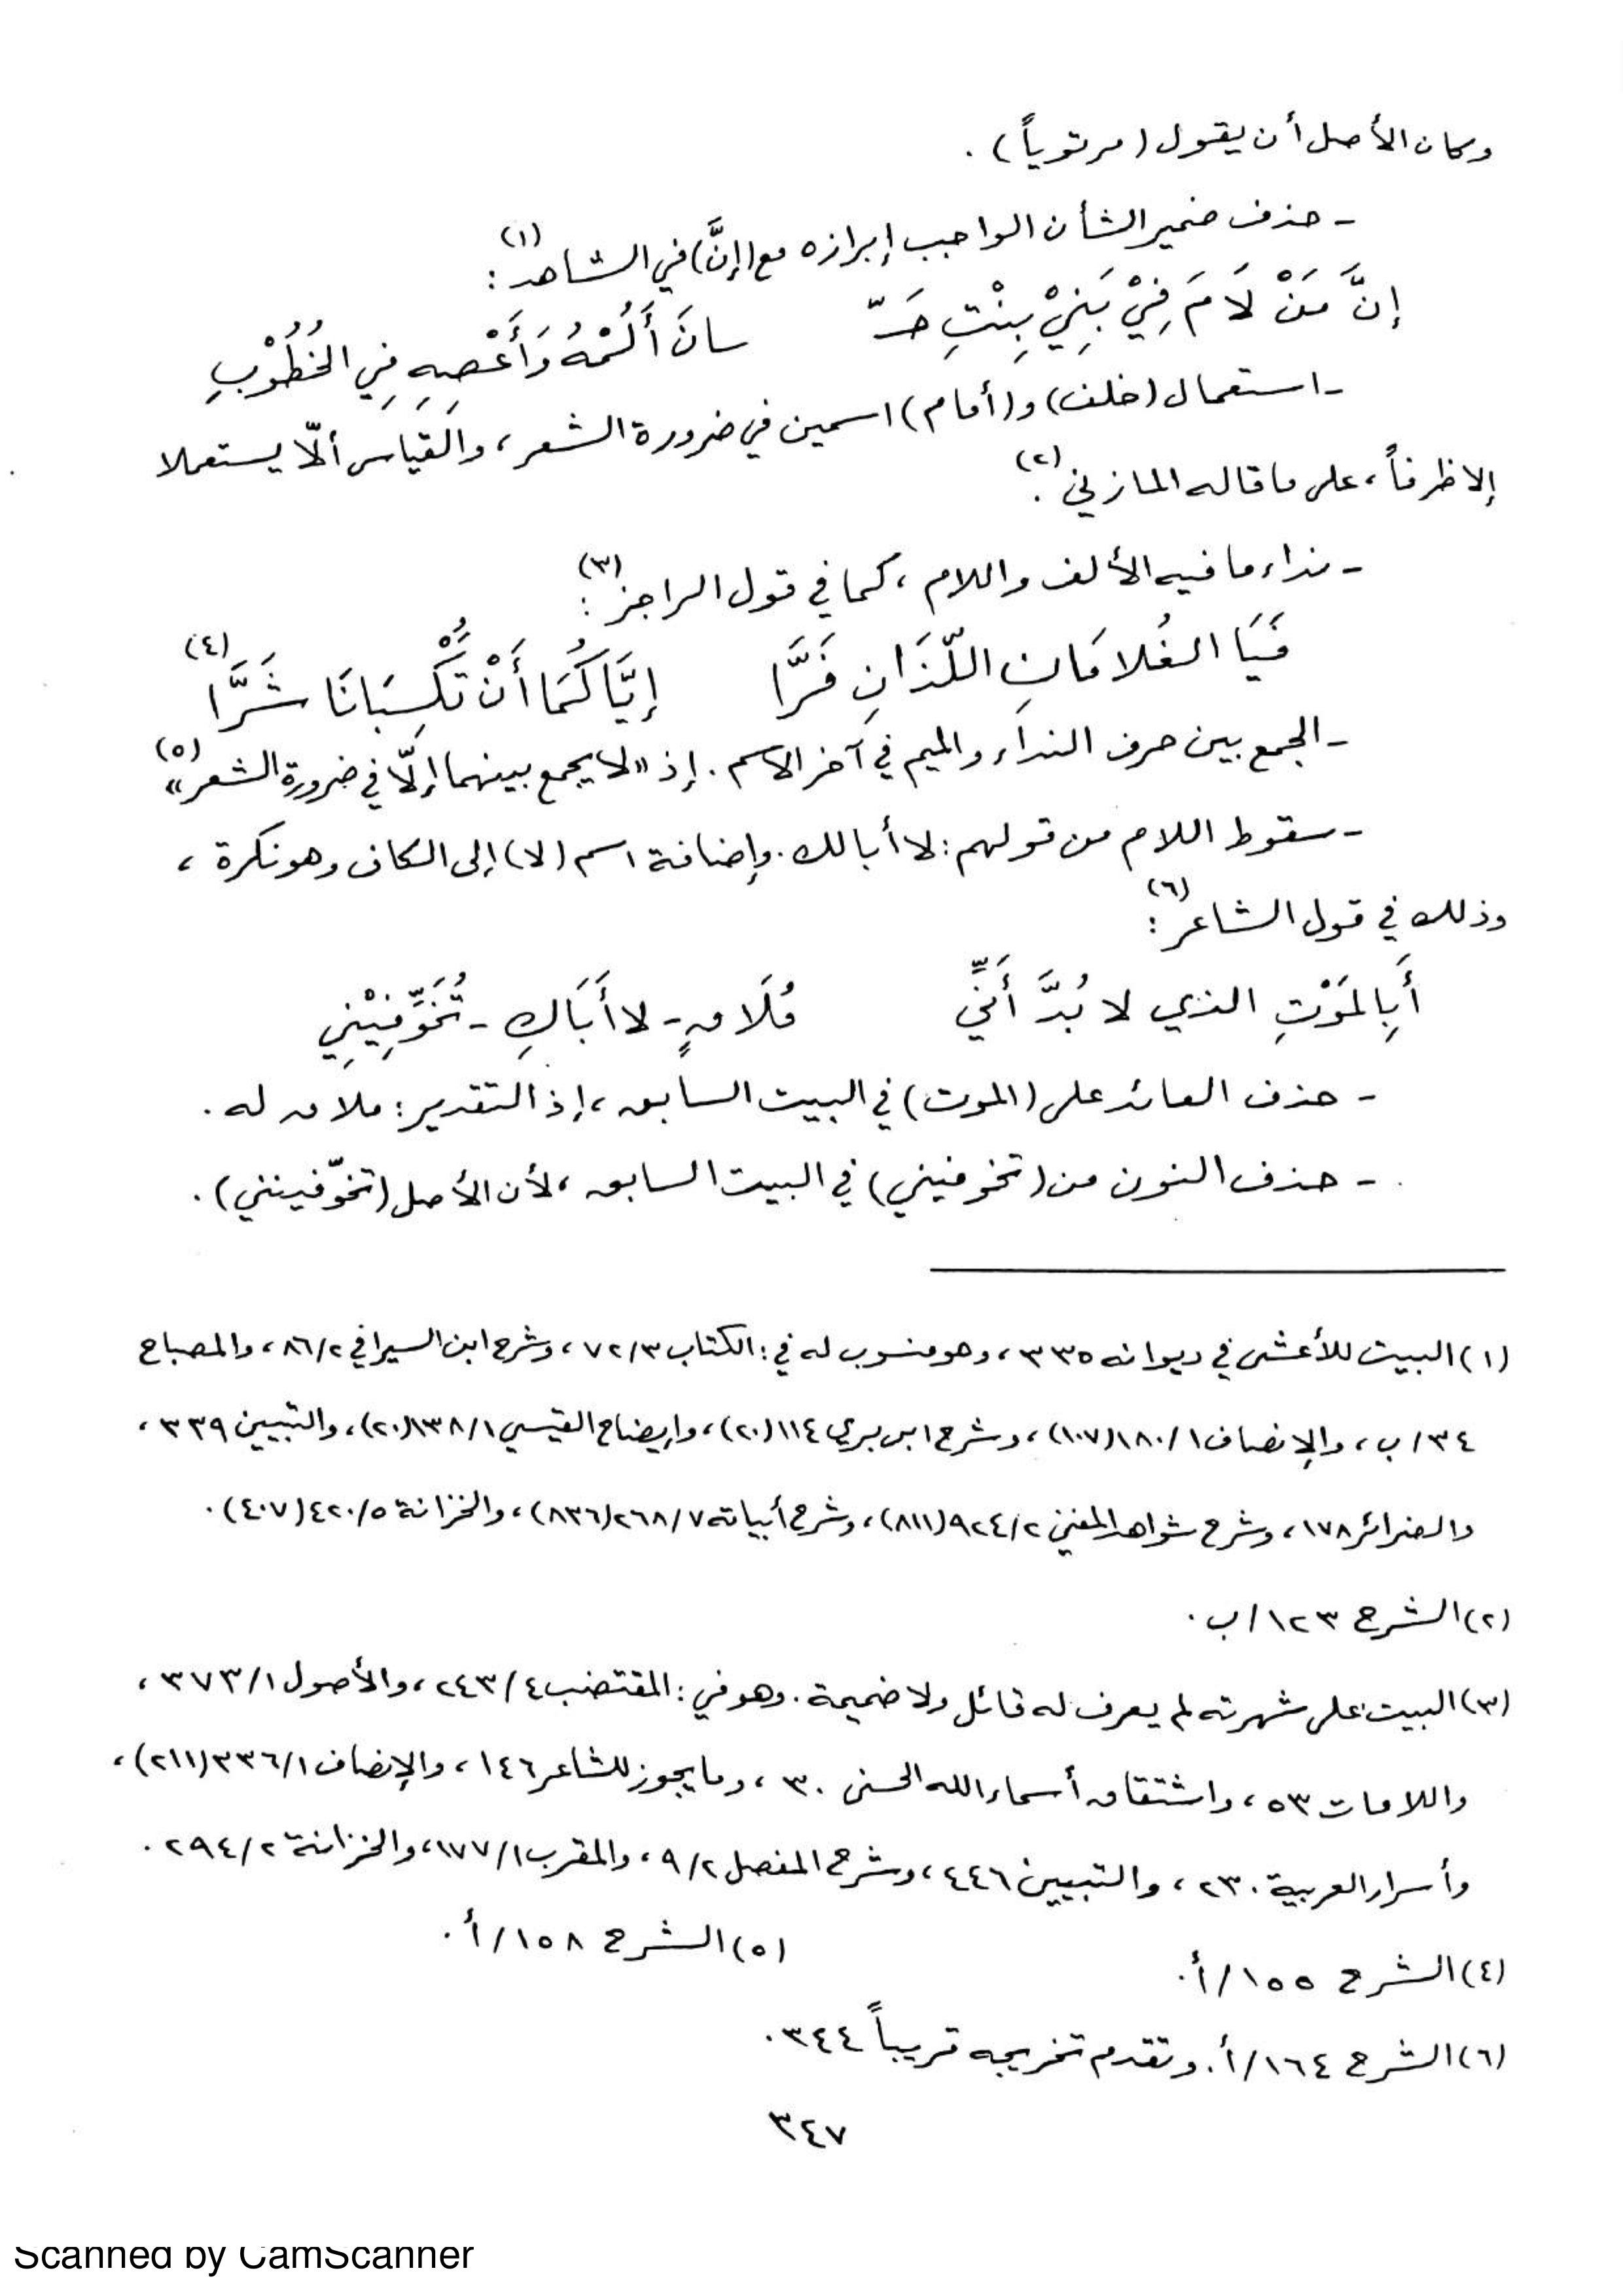 وكان الأصل أن يقول (مرتوياً) .
- حذف ضمير الشأن الواجب إبرازه مع (إنَّ) في الشاهد(١) :
إنَّ مَنْ لَامَ فِيْ بَنِيْ بِنْتِ حَسّـ    ـسانَ أَلُمْهُ وَأَعْصِهِ فِي الخُطُوْبِ
- استعمال (خلف) و(أمام) اسمين في ضرورة الشعر ، والقياس ألّا يستعملا
إلا ظرفاً ، على ما قاله المازني(٢) .
- نداء ما فيه الألف واللام ، كما في قول الراجز(٣) :
فَيَا الغُلامَانِ اللّذَانِ فَرَّا    إيَّاكُمَا أَنْ تُكْسِبَانَا شَرَّا(٤)
- الجمع بين حرف النداء والميم في آخر الاسم . إذ «لا يجمع بينهما إلّا في ضرورة الشعر»(٥)
- سقوط اللام من قولهم : لا أبالك . وإضافة اسم (لا) إلى الكاف وهو نكرة ،
وذلك في قول الشاعر(٦) :
أَبِالمَوْتِ الذي لا بُدَّ أَنِّيْ    مُلَاقٍ - لا أَبَاكِ - تُخَوِّفِيْنِي
- حذف العائد على (الموت) في البيت السابق ، إذ التقدير : ملاق له .
- حذف النون من (تخوفيني) في البيت السابق ، لأن الأصل (تخوّفينني) .
(١) البيت للأعشى في ديوانه ٣٣٥ ، وهو منسوب له في : الكتاب ٧٢/٣ ، وشرح ابن السيرافي ٨٦/٢ ، والمصباح
٣٤/ب ، والإنصاف ١٨٠/١(١٠٧) ، وشرح ابن بري ١١٤(٢٠) ، وإيضاح القيسي ١٣٨/١(٢٠) ، والتبيين ٣٣٩ ،
والضرائر ١٧٨ ، وشرح شواهد المغني ٩٢٤/٢(٨١١) ، وشرح أبياته ٢٦٨/٧(٨٣٦) ، والخزانة ٤٢٠/٥(٤٠٧) .
(٢) الشرح ١٢٣/ب .
(٣) البيت على شهرته لم يعرف له قائل ولا ضميمة . وهو في : المقتضب ٢٤٣/٤ ، والأصول ٣٧٣/١ ،
واللامات ٥٣ ، واشتقاق أسماء الله الحسنى ٣٠ ، وما يجوز للشاعر ١٤٦ ، والإنصاف ٣٣٦/١(٢١١) ،
وأسرار العربية ٢٣٠ ، والتبيين ٤٤٦ ، وشرح المفصل ٩/٢ ، والمقرب ١٧٧/١ ، والخزانة ٢٩٤/٢ .
(٤) الشرح ١٥٥/أ .    (٥) الشرح ١٥٨/أ .
(٦) الشرح ١٦٤/أ . وتقدم تخريجه قريباً ٣٤٤ .
٣٤٧
Scanned by CamScanner